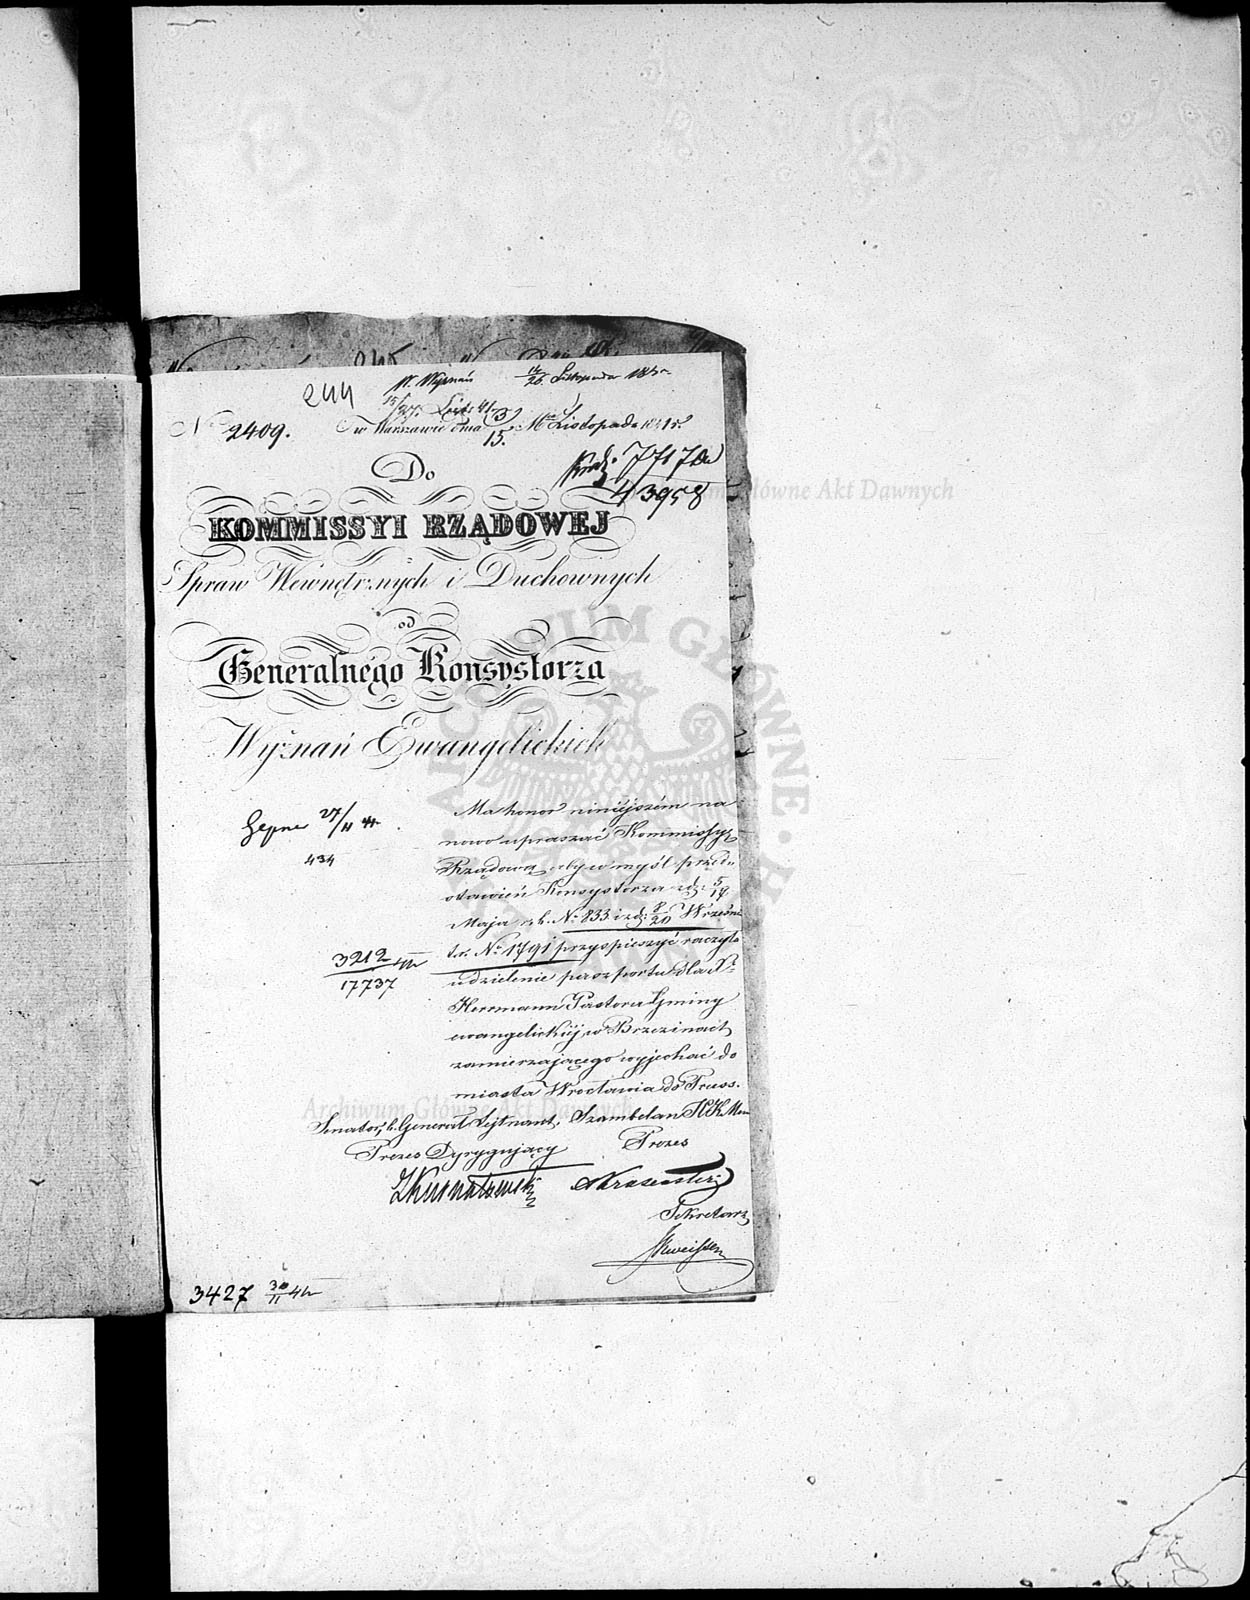 244
W. Wyznań 14/26 Listopada 184
No 2409. w Warszawie dnia 3/15. Mca Listopada 1841 r.
7717
43958
Do
KOMMISSYI RZĄDOWEJ
Spraw Wewnętrznych i Duchownych
od
Generalnego Konsystorza
Wyznań Ewangelickich
27/11
434
Ma honor niniejszém na
nowo upraszać Kommissyę
Rządową, aby w myśl przed-
stawień Konsystorza z d: 5/17
Maja r. b. No 833. i z d: 8/20 Wrześnie
t. r. No 1791 przyspieszyć raczyła
3212
17737
udzielenie paszportu dla Xa
Herrmann Pastora Gminy
ewangelickiéj w Brzezinach,
zamierzającego wyjechać do
miasta Wrocławia do Pruss.
Senator, Generał Lejtnant, Szambelan
Prezes Dyrygujący Prezes
Sekretarz
3427 30/11
Archiwum Główne Akt Dawnych
Archiwum Główne Akt Dawnych
ARCHIWUM GŁÓWNE